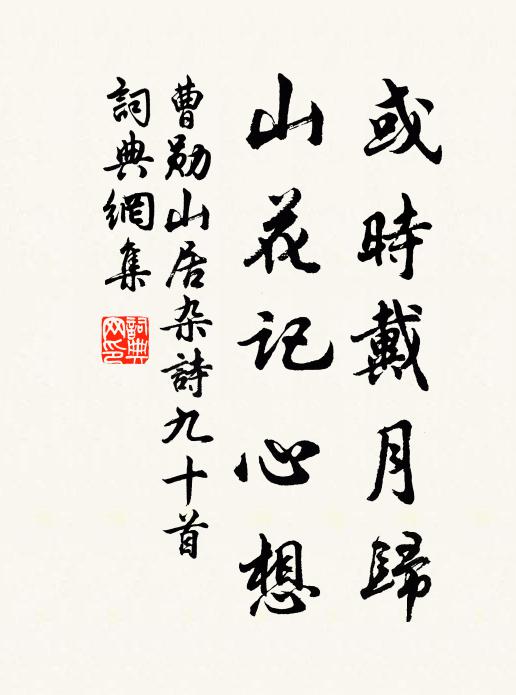 或時戴月歸
山花記心想
曹勛山居杂詩九十首
詞典網集
詞典網印